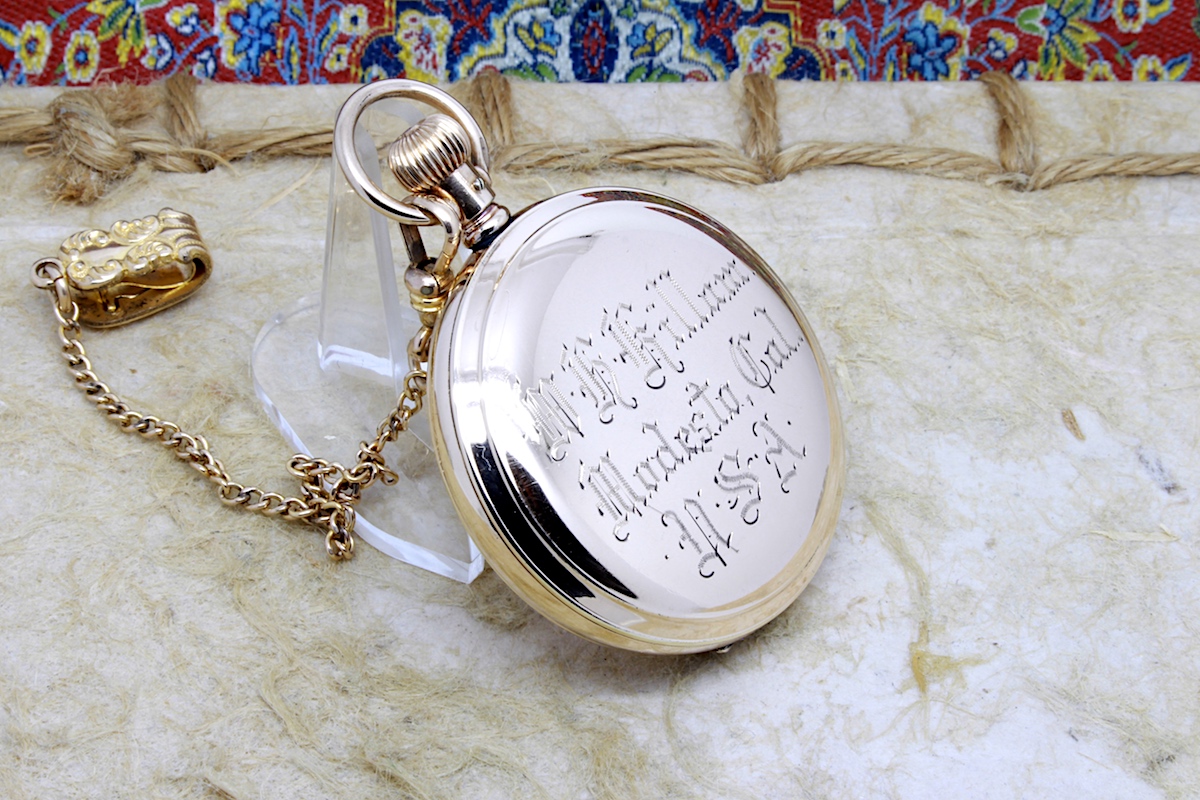 W. H. Killam
Modesto, Cal.
U. S. A.